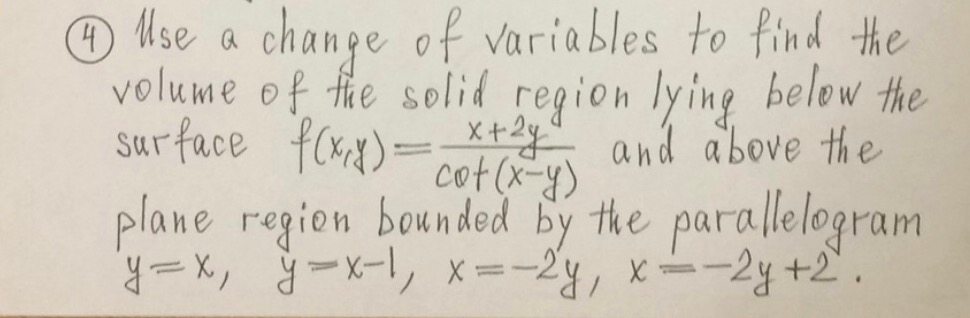 ④ Use a change of variables to find the
volume of the solid region lying below the
surface f(x,y) = (x+2y)/(cot(x-y)) and above the
plane region bounded by the parallelogram
y=x, y=x-1, x=-2y, x=-2y+2.